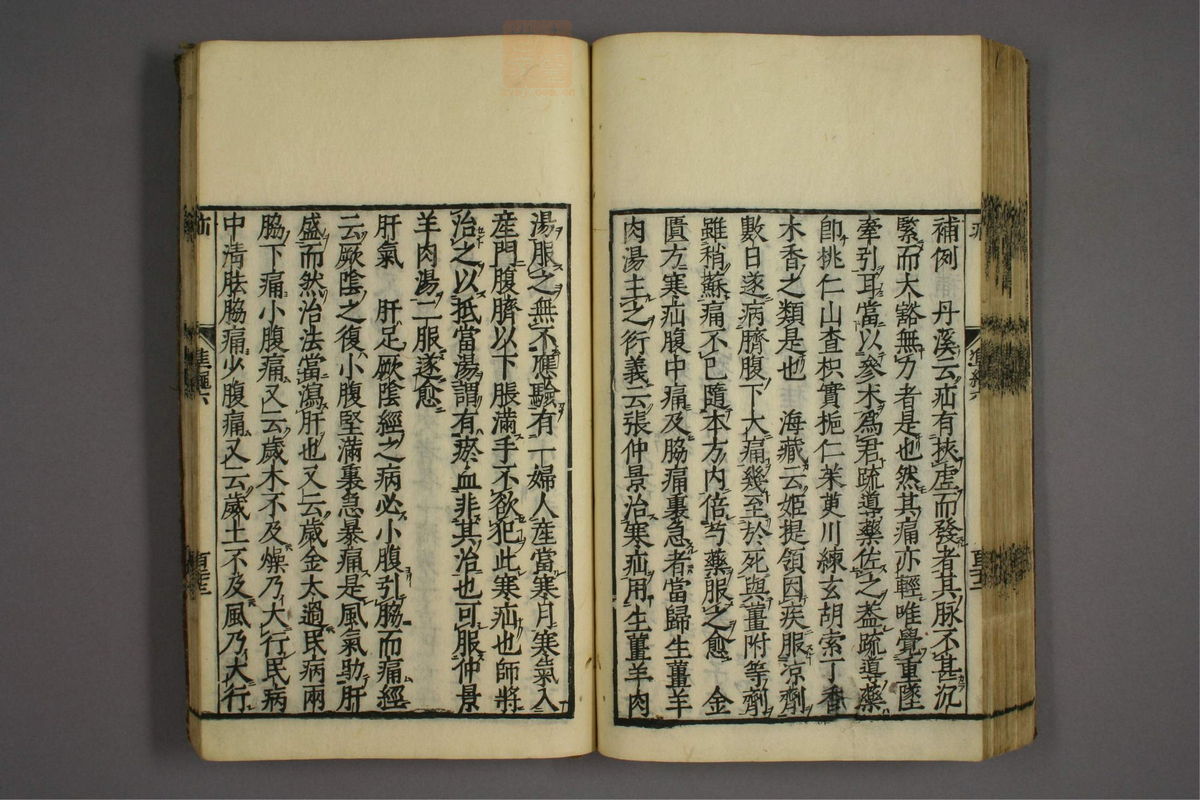 補例　丹溪云疝有挾虛而發者其脉不甚沉
緊而大豁無力者是也然其痛亦輕唯覺重墜
牽引耳當以參朮爲君疏導藥佐之蓋疏導藥
卽桃仁山査枳實梔仁茱萸川練玄胡索丁香
木香之類是也　海藏云姬提領因疾服凉劑
數日遂病臍腹下大痛幾至於死與薑附等劑
雖稍蘇痛不已隨本方内倍芍藥服之愈　金
匱方寒疝腹中痛及脇痛裏急者當歸生薑羊
肉湯主之衍義云張仲景治寒疝用生薑羊肉
湯服之無不應驗有一婦人産當寒月寒氣入
産門腹臍以下脹滿手不欲犯此寒疝也師將
治之以抵當湯謂有瘀血非其治也可服仲景
羊肉湯二服遂愈
肝氣　肝足厥陰經之病必小腹引脇而痛經
云厥陰之復小腹堅滿裏急暴痛是風氣助肝
盛而然治法當瀉肝也又云歲金太過民病兩
脇下痛小腹痛又云歲木不及燥乃大行民病
中淸胠脇痛少腹痛又云歲土不及風乃大行
疝
準繩六